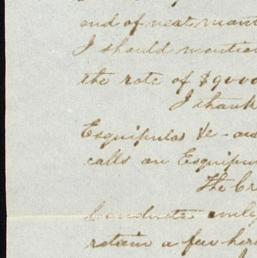 end of next
I should mention
the rate of $9000
I thank
Esquipulas &c - and
calls on Esquipu
The
conducta only
retain a few her